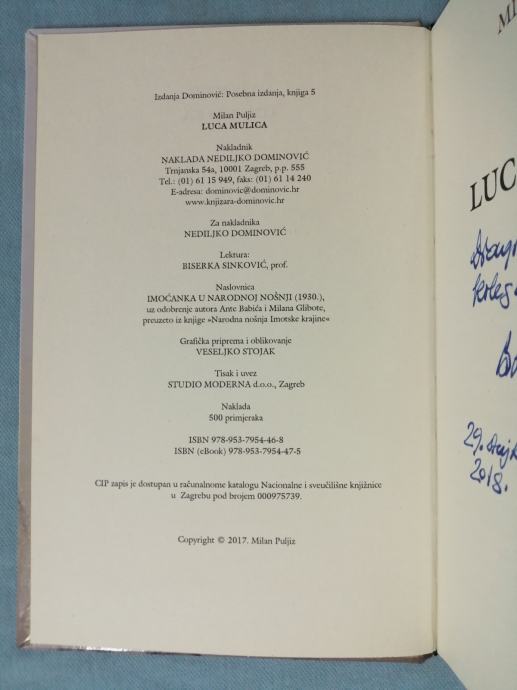 Izdanja Dominović: Posebna izdanja, knjiga 5
Milan Puljiz
LUCA MULICA
Nakladnik
NAKLADA NEDILJKO DOMINOVIĆ
Trnjanska 54a, 10001 Zagreb, p.p. 555
Tel.: (01) 61 15 949, faks: (01) 61 14 240
E-adresa: dominovic@dominovic.hr
www.knjizara-dominovic.hr
Za nakladnika
NEDILJKO DOMINOVIĆ
Lektura:
BISERKA SINKOVIĆ, prof.
Naslovnica
IMOĆANKA U NARODNOJ NOŠNJI (1930.),
uz odobrenje autora Ante Babića i Milana Glibote,
preuzeto iz knjige »Narodna nošnja Imotske krajine«
Grafička priprema i oblikovanje
VESELJKO STOJAK
Tisak i uvez
STUDIO MODERNA d.o.o., Zagreb
Naklada
500 primjeraka
ISBN 978-953-7954-46-8
ISBN (eBook) 978-953-7954-47-5
CIP zapis je dostupan u računalnome katalogu Nacionalne i sveučilišne knjižnice
u Zagrebu pod brojem 000975739.
Copyright © 2017. Milan Puljiz
MI
LUC
29.
2018.